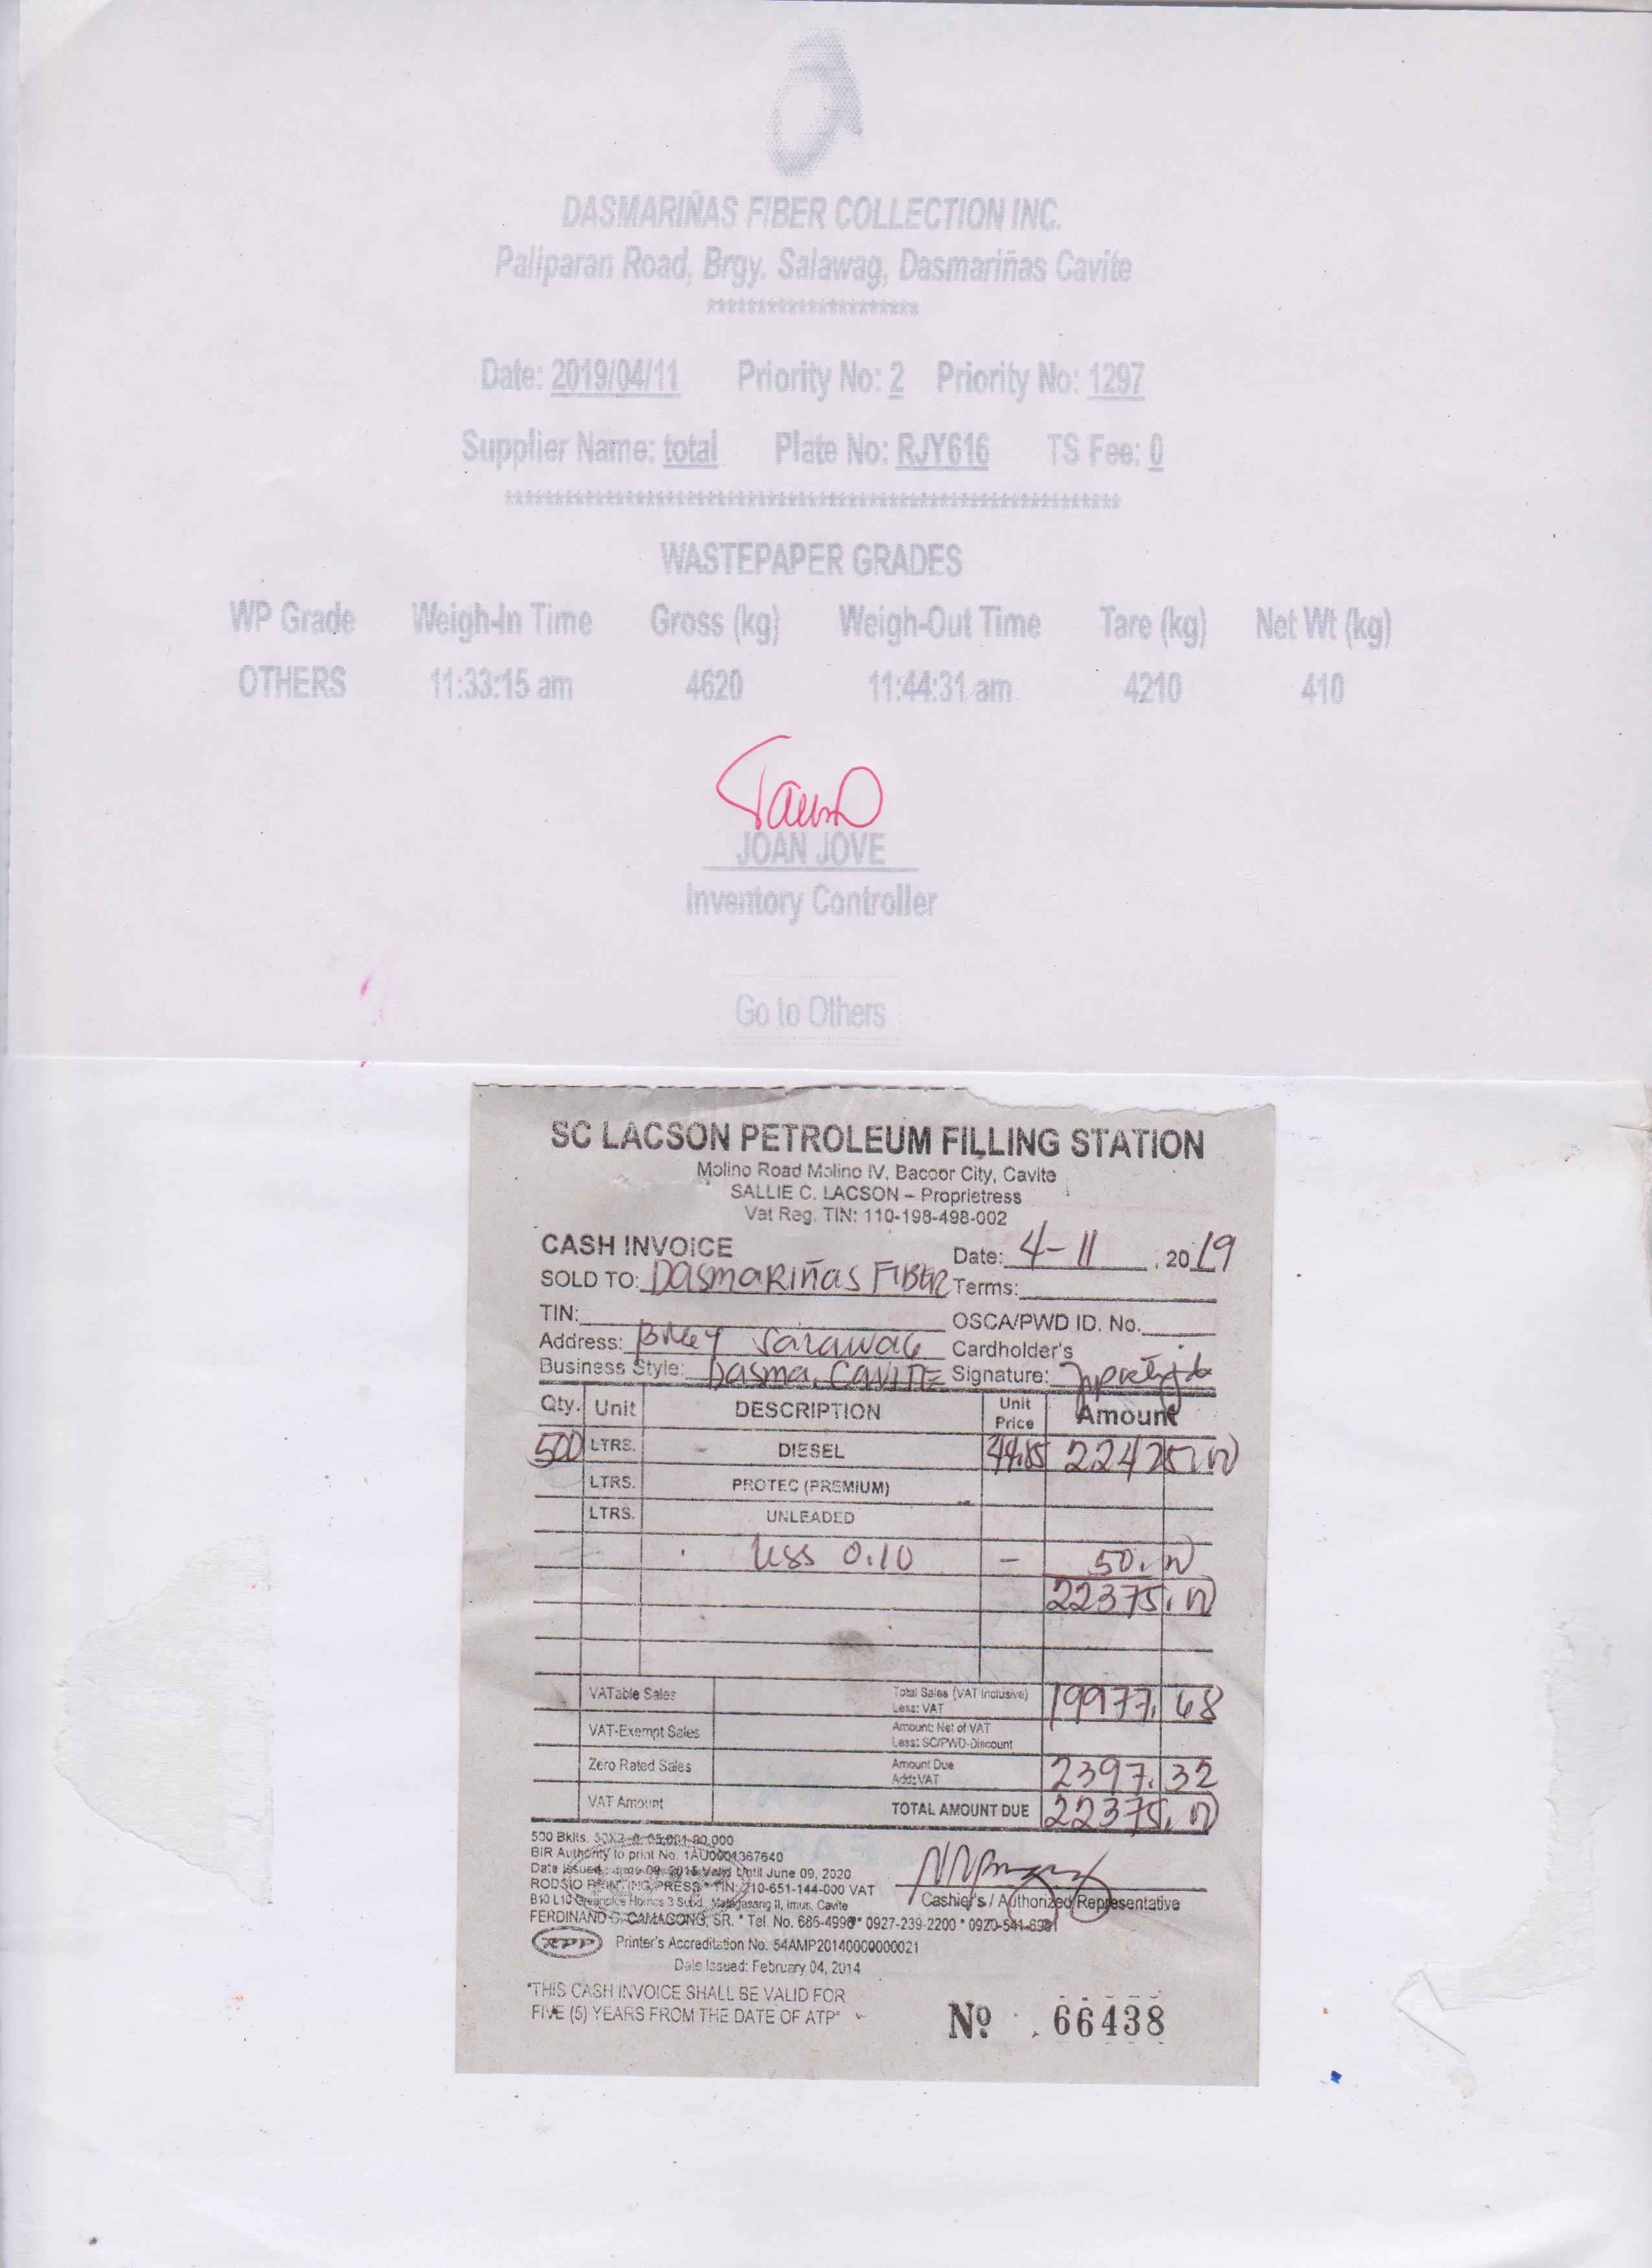 DASMARIÑAS FIBER COLLECTION INC.
Paliparan Road, Brgy. Salawag, Dasmariñas Cavite
Date: 2019/04/11 Priority No: 2 Priority No: 1297
Supplier Name: total Plate No: RJY616 TS Fee: 0
WASTEPAPER GRADES
WP Grade Weigh-In Time Gross (kg) Weigh-Out Time Tare (kg) Net Wt (kg)
OTHERS 11:33:15 am 4620 11:44:31 am 4210 410
JOAN JOVE
Inventory Controller
Go to Others
SC LACSON PETROLEUM FILLING STATION
Molino Road Molino IV, Bacoor City, Cavite
SALLIE C. LACSON – Proprietress
Vat Reg. TIN: 110-198-498-002
CASH INVOICE Date: 4-11, 2019
SOLD TO: DASMARIÑAS FIBER Terms:
TIN: OSCA/PWD ID. No.
Address: BRGY SaLAWAG Cardholder's
Business Style: DASMA, CAVITE Signature:
Qty. Unit DESCRIPTION Unit Price Amount
500 LTRS. DIESEL 44.85 22425.00
LTRS. PROTEC (PREMIUM)
LTRS. UNLEADED
less 0.10 – 50.00
22375.00
VATable Sales Total Sales (VAT Inclusive) 19977.68
Less: VAT
VAT-Exempt Sales Amount: Net of VAT
Less: SC/PWD-Discount
Zero Rated Sales Amount Due 2397.32
Add: VAT
VAT Amount TOTAL AMOUNT DUE 22375.00
500 Bklts.
BIR Authority to print No. 1AU0001367640
Date Issued: June 09, 2015 Valid Until June 09, 2020
RODSIO PRINTING PRESS * TIN: 210-651-144-000 VAT
B10 L10 Greenplce Homes 3 Subd., Malagasang II, Imus, Cavite
Cashier's / Authorized Representative
FERDINAND S. CAMAGONG, SR. * Tel. No. 686-4996 * 0927-239-2200 *
RPP Printer's Accreditation No. 54AMP20140000000021
Date Issued: February 04, 2014
"THIS CASH INVOICE SHALL BE VALID FOR
FIVE (5) YEARS FROM THE DATE OF ATP"
Nº 66438